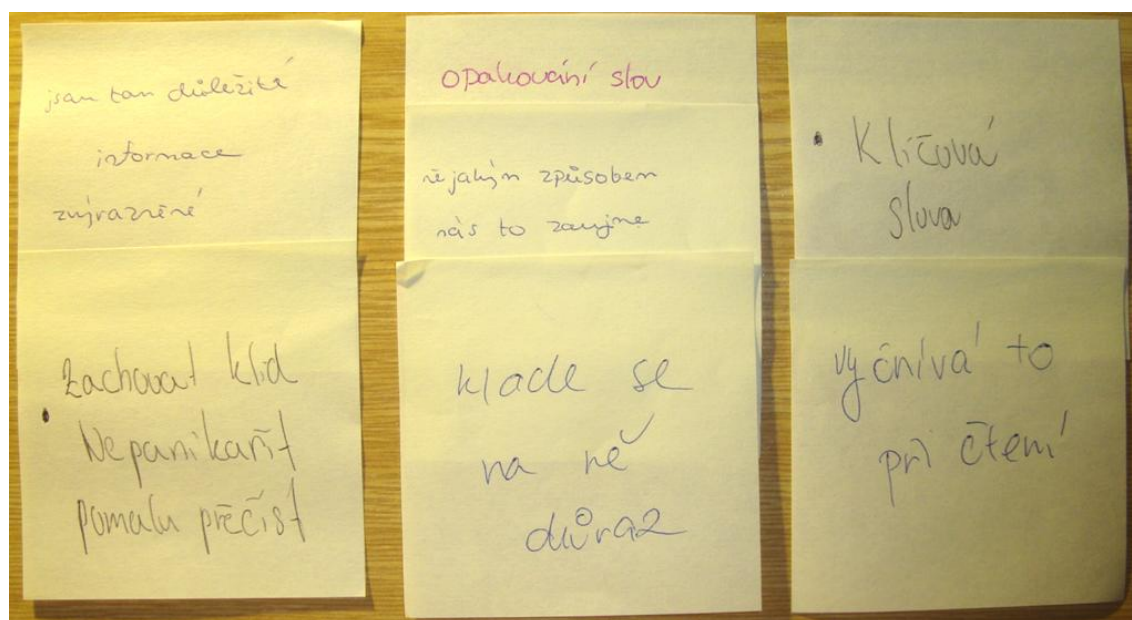 jsou tam důležité
informace
zvýrazněné
Zachovat klid
Nepanikařit
pomalu přečíst
opakování slov
nějakým způsobem
nás to zaujme
klade se
na ně
důraz
Klíčová
slova
vyčnívá to
při čtení